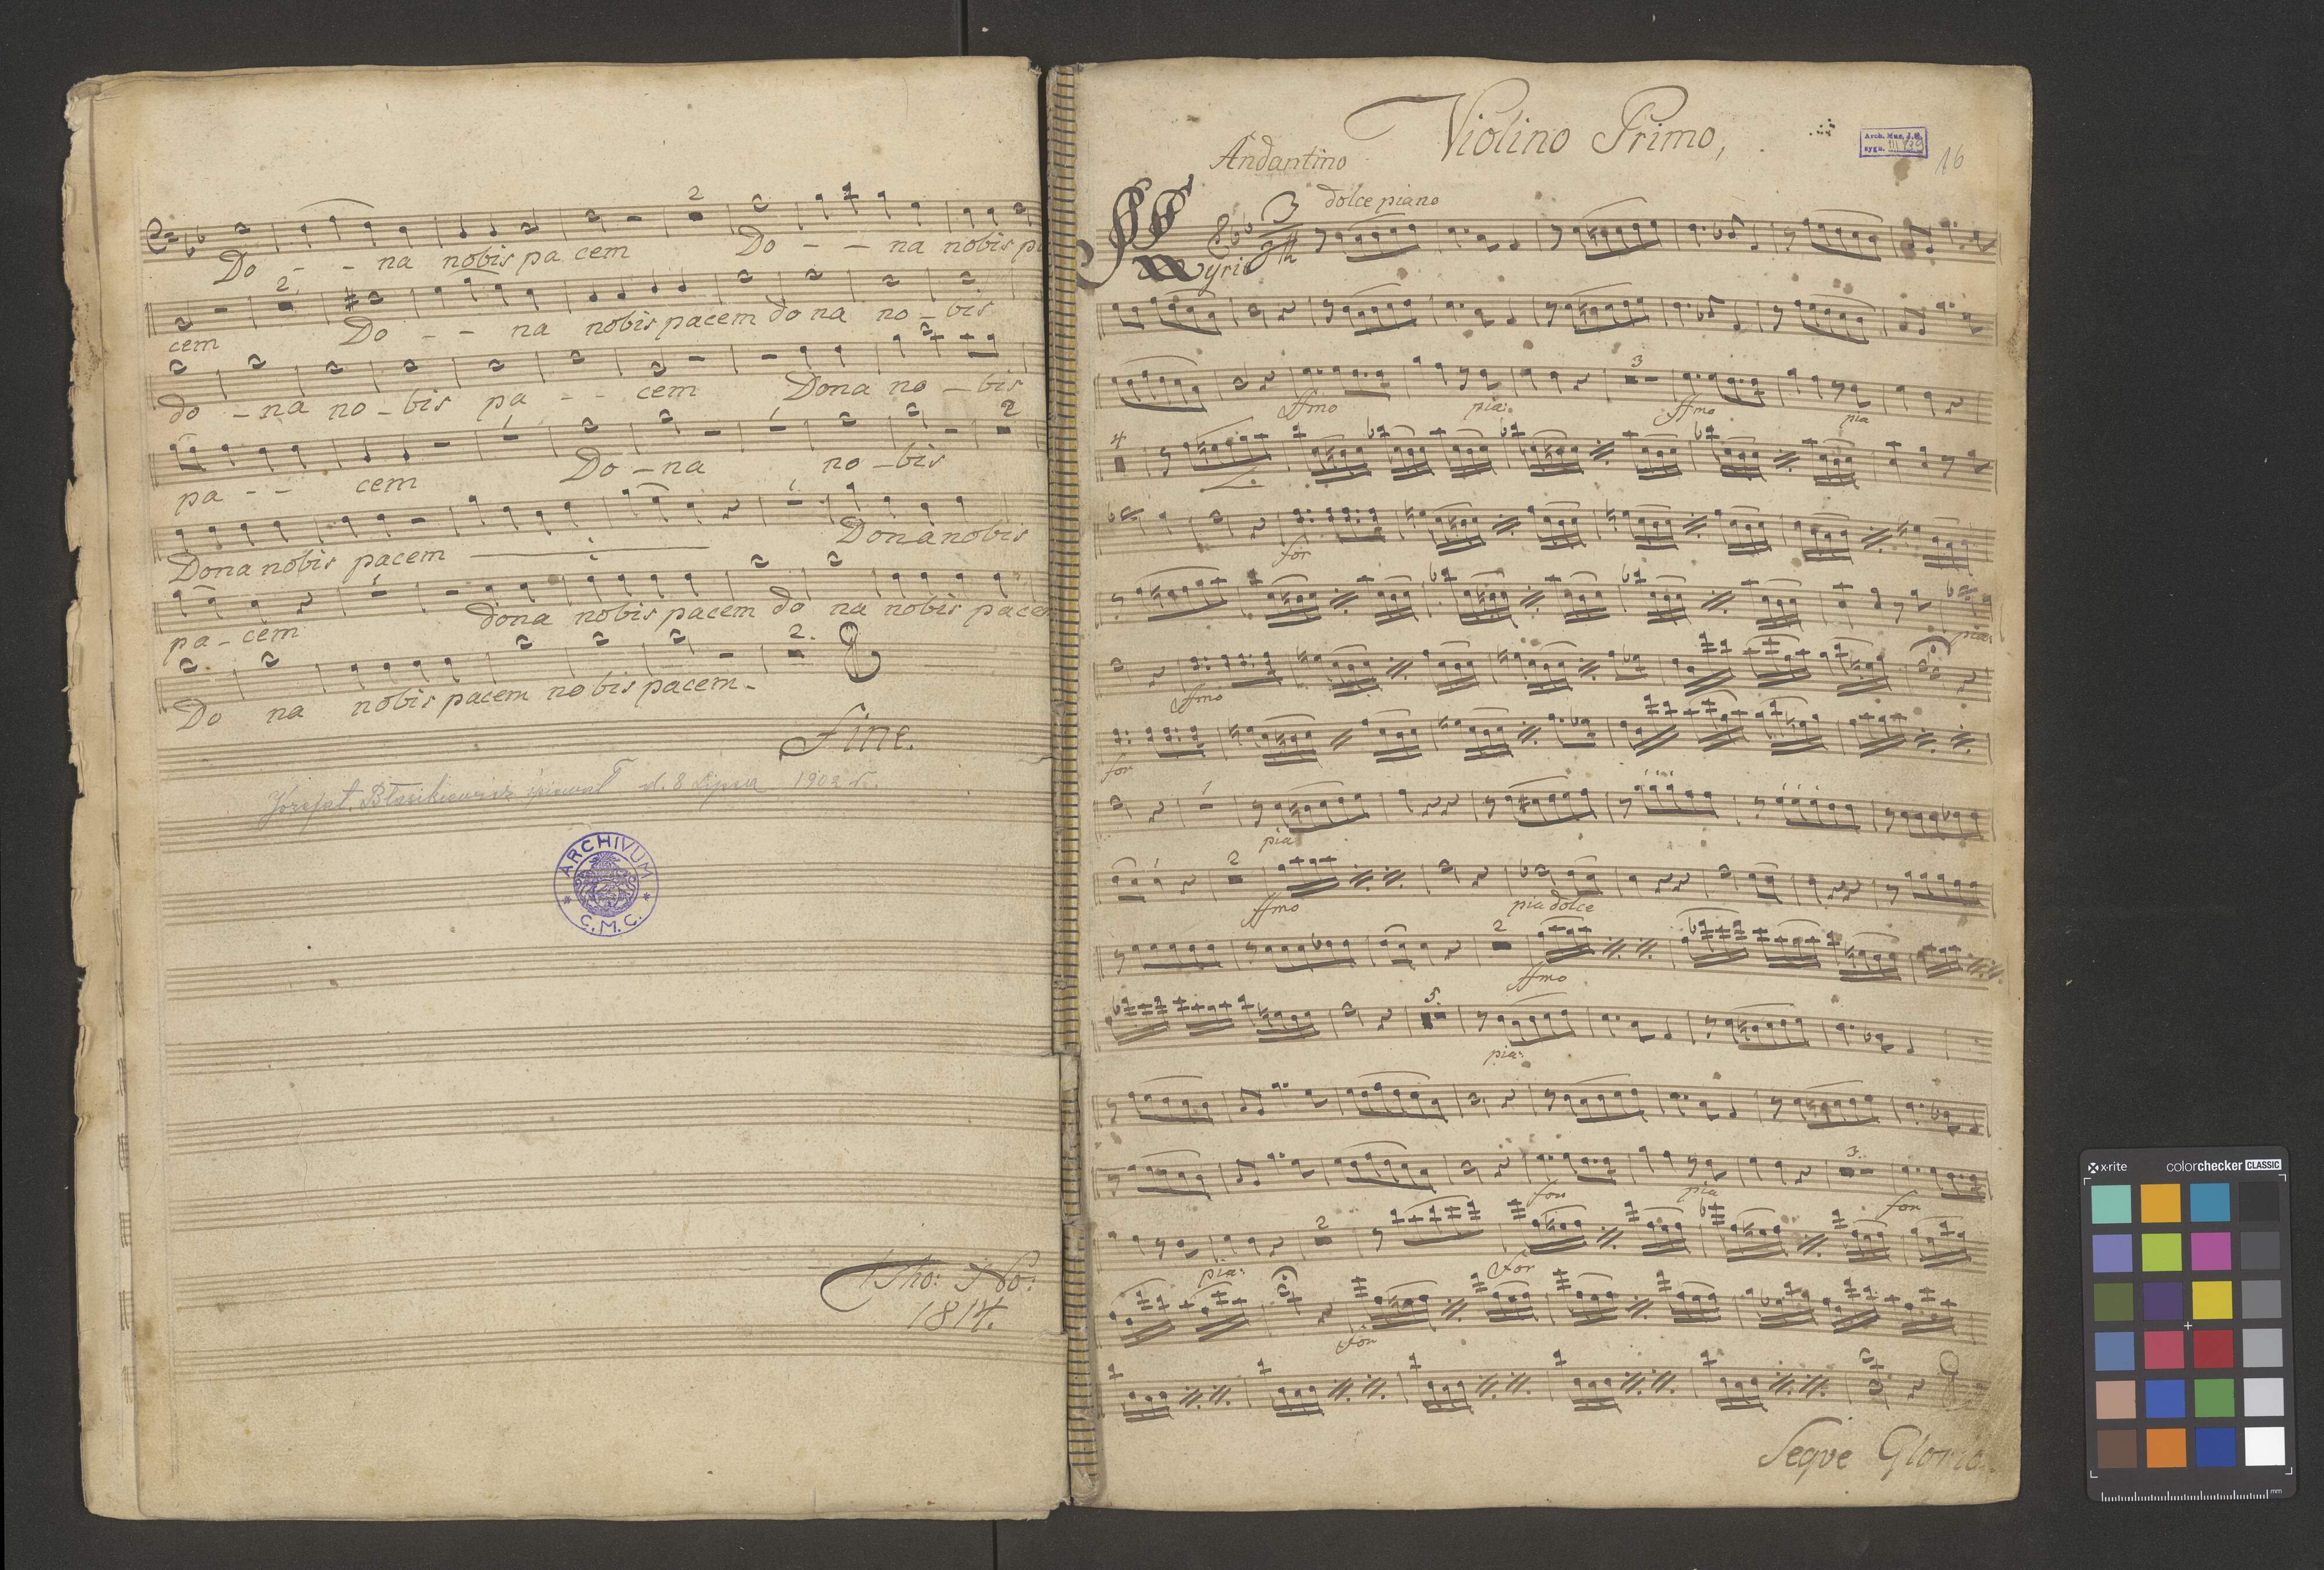 2
Do - - na nobis pa cem Do - - na nobis pa
2
cem Do - - na nobis pacem do na no - bis
do - na no - bis pa - - cem Dona no - bis
2
pa - - cem Do - na no - bis
Dona nobis pacem Dona nobis
pa - cem dona nobis pacem do na nobis pacem
2.
Do na nobis pacem no bis pacem -
Fine.
d. 8 Lipca 1902 r.
ARCHIVUM
* C.M.C. *
1814.
Violino Primo,
Arch. Muz. J.G.
sygn. III
16
Andantino
dolce piano
3
Kyrie
3
ffmo pia: ffmo pia
4
for
pia:
ffmo
for
1
pia
2
ffmo pia dolce
2
ffmo
5.
pia:
3.
for pia for
2
pia: For
For
Seqve Gloria
x-rite colorchecker CLASSIC
mm